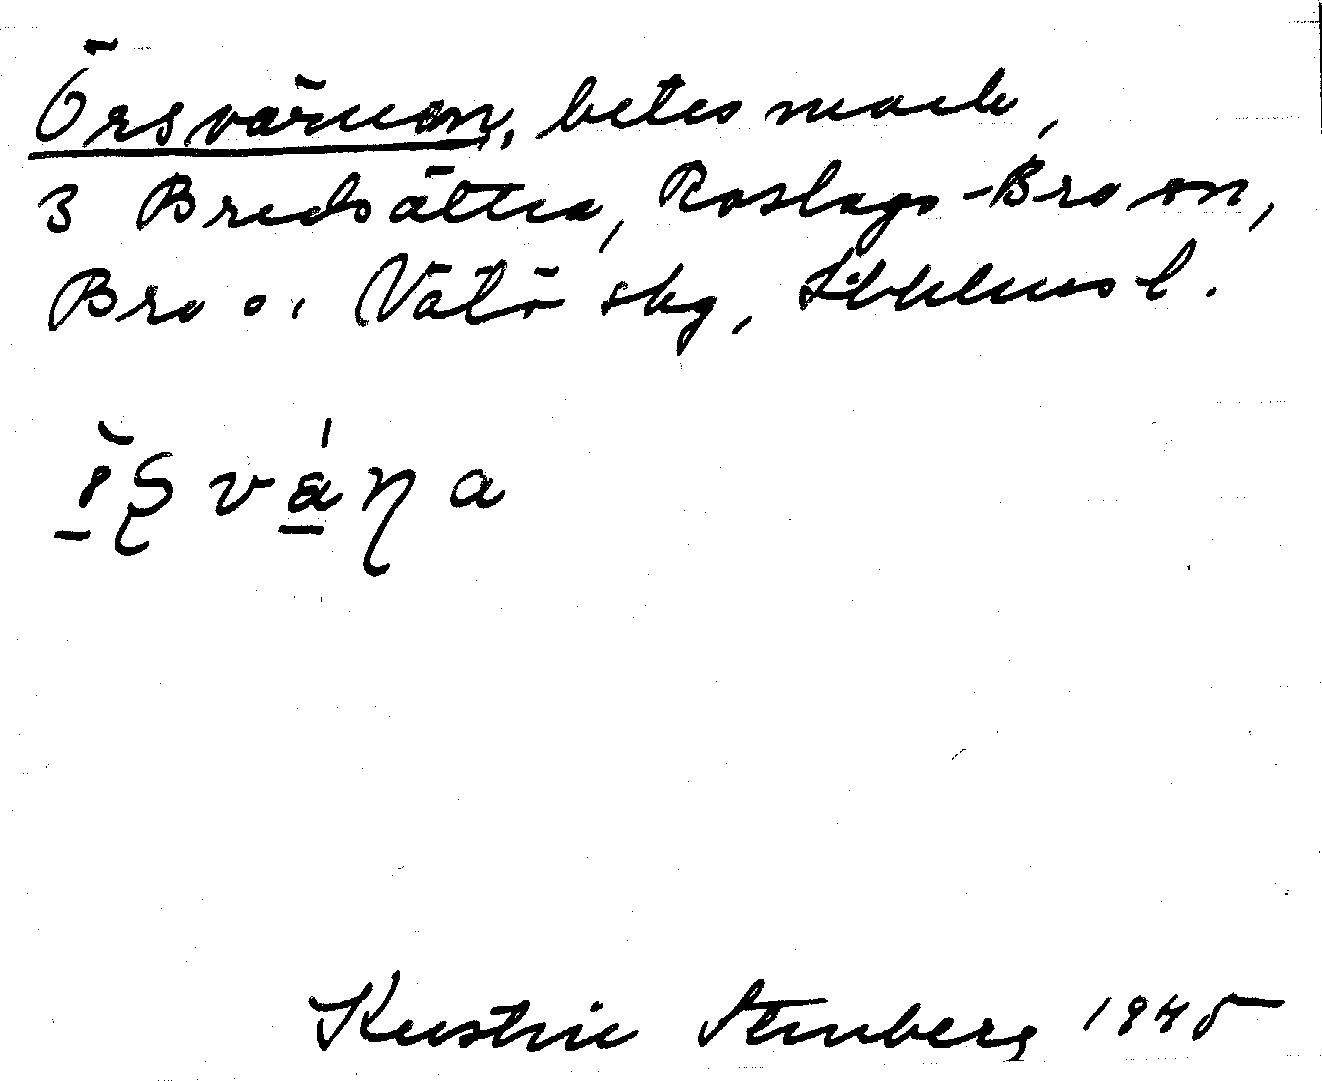 Örsvärnan, betesmark,
3 Bredsättra, Roslags-Bro sn,
Bro o. Vätö skg, Sthlms l.
Kerstin Stenberg 1945